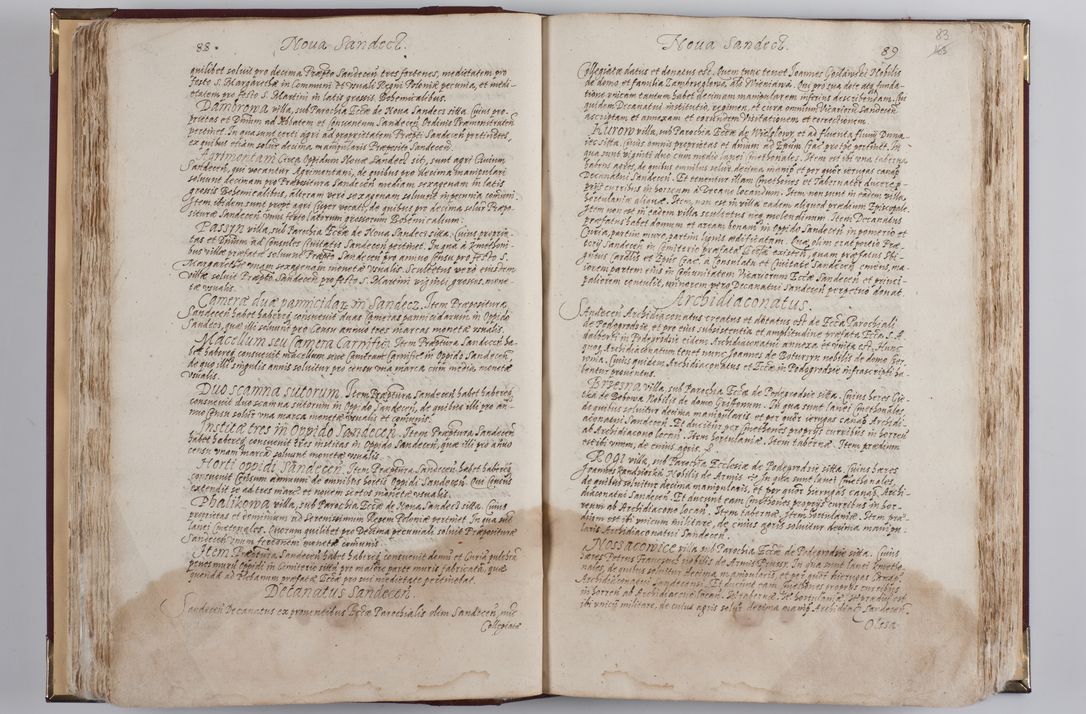 88.
Noua Sandecz.
quilibet soluit pro decima Præpto Sandeceñ tres fertones, medietatem pro
festo S. Margarethæ in communi et usuali Regni Poloniæ pecunia, et medi-
etatem pro festo S. Martini in latis grossis Bohemicalibus.
Dambrowa villa, sub Parochia Eccłæ de Noua Sandecz sitta. Cuius pro-
prietas et Dñium ad Abbatem et Conuentum Sandeceñ Ordinis Præmonstrateñ
pertinet. In qua sunt certi agri ad proprietatem Præpti Sandeceñ pertinentes,
ex quibus etiam soluit decima manipularis Præposito Sandeceñ.
Agrimontam Circa Oppidum Nouæ Sandecz sit, sunt agri Ciuium
Sandeceñ, qui vocantur Agrimontani, de quibus pro decima manipulari
soluunt decimam pro Præpositura Sandeceñ mediam sexagenam in latis
grossis Bohemicalibus, alteram vero sexagenam soluunt in pecunia comuni.
Item ibidem sunt propt agri Cuper vocati, de quibus pro decima soluit Præpo-
situræ Sandeceñ vnus ferto latorum grossorum Bohemicalium.
Passyn villa, sub Parochia Eccłæ de Noua Sandecz sitta. Cuius proprie-
tas et Dñium ad Consules Ciuitatis Sandeceñ pertinet. In qua à Kmethoni-
bus villæ præfatæ soluunt Præpto Sandeceñ pro annuo Censu pro festo S.
Margarethæ vnam sexagenam monetæ vsualis. Scultetus vero eiusdem
villæ soluit Præpto Sandeceñ pro festo S. Martini viginti grossos, mone-
tæ vsualis.
Cameræ duæ pannicidar̃ in Sandecz. Item Præpositura
Sandeceñ habet habereq̃ consueuit duas Cameras pannicidarum in Oppido
Sandecz, quæ illi soluunt pro Censu annuo tres marcas monetæ vsualis.
Macellum seu Camera Carnific. Item Præptura Sandeceñ ha-
bet habereq̃ consueuit macellum siue Cameram Carnificũ in Oppido Sandeceñ,
de quo illi singulis annis soluitur pro censu vna marca cum media, monetæ
vsualis.
Duo scamna sutorum. Item Præptura Sandeceñ habet habereq̃
consueuit duo scamna sutorum in Oppido Sandeceñ, de quibus illi pro an-
nuo Censu soluit vna marca monetæ vsualis et comunis.
Institæ tres in Oppido Sandeceñ. Item Præptura Sandeceñ
habet habereq̃ consueuit tres institas in Oppido Sandeceñ, quæ illi pro annuo
censu vnam marcã soluunt monetæ vsualis.
Horti oppidi Sandeceñ. Item Præptura Sandeceñ habet habereq̃
consueuit Censum annuum de omnibus hortis Oppidi Sandeceñ. Qui Census
extendit se ad tres marcas et nouem scotos monetæ vsualis.
Phalikowa villa, sub Parochia Eccłæ de Noua Sandecz sitta. Cuius
proprietas et dominium ad Serenissimum Regem Poloniæ pertinet. In qua sũt
lanei Cmethonales. Quorum quilibet pro Decima pecuniali soluit Præposituræ
Sandeceñ vnum fertonem monetæ comunis.
Item Præptura Sandeceñ habet habereq̃ consueuit domũ et Curiã pulchrã
penes murũ Oppidi in Cimiterio sittã pro maiore parte muris fabricatã, quæ
quondã ad Plebanum præfatæ Eccłæ pro sui medietate pertinebat.
Decanatus Sandeceñ.
Sandeceñ Decanatus ex prouentibus Eccłæ Parochialis olim Sandeceñ, nũc
Collegiatæ
Noua Sandecz.
89.
83
Collegiatæ datus et donatus est. Quem tunc tenet Joannes Goslawski Nobilis
de domo et familia Zambrzyglowa, als Wieniawa. Qui pro sua dote et funda-
tione vnicam tantum habet decimam manipularem inferius describendam. Cui
quidem Decanatui institutio, regimen, et cura omniũ Vicariorũ Sandeceñ
ascriptam et annexam et eorundem Visitationem et correctionem.
Kurow villa, sub Parochia Eccłæ de Wielglowy, et ad fluenta fluuij Duna-
iec sitta. Cuius omnis proprietas et dñium ad Epũm Crac pro tñe pertinet. In
qua sunt viginti duo cum medio lanei Cmethonales. Item est ibi vna taberna
habens agros, de quibus omnibus soluit decima manip et per quos ierugas canap
Decanatui Sandeceñ. Et tenentur illam Cmethones et Tabernator ducere pro-
prijs curribus in horreum à Decano locandum. Item non sunt in eadem villa
hortulaniæ aliquæ. Item, non est in villa eadem aliquod prædium Episcopale.
Item non est in eadem villa scultetus neq̃ molendinum. Item Decanatus
præfatus habet domum et aream bonam in Oppido Sandeceñ in pomerio et
Curia, partim muro, partim lignis ædificatam. Quæ olim erat positio Præ-
torij Sandeceñ in Cimiterio præfatæ Eccłæ existeñ, quam præfatus Sbi-
gneus Cardlis et Epũs Crac. à Consulatu et Ciuitate Sandeceñ emens, ma-
iorem partem eius in Comunitatem Vicariorum Eccłæ Sandeceñ et princi-
paliorem conuertit, minorem vero Decanatui Sandeceñ perpetuo donat.
Archidiaconatus.
Sandeceñ Archidiaconatus creatus et dotatus est de Eccła Parochiali
de Podegrodzie, et pro eius subsistentia et amplitudine præfata Eccła S. A-
dalberti in Podegrodzie eidem Archidiaconatui annexa et vnita est. Hunc
quoq̃ Archidiaconatum tenet nunc Joannes de Boturzyn nobilis de domo Cor-
uina. Cuius quidem Archidiaconatus et Eccłæ in Podegrodzie infrascripti ha-
bentur prouentus.
Brzesna villa, sub Parochia Eccłæ de Podegrodzie sitta. Cuius heres Cie-
cka de Bobowa Nobilis de domo Griffonum. In qua sunt lanei Cmethonales
de quibus soluitur decima manipularis, et per quos ierugas canap Archidi-
aconatui Sandeceñ. Et ducitur per Cmethones proprijs curribus in horreũ
ab Archidiacono locan. Item hortulaniæ. Item tabernæ. Item prædium
est ibi vnum, de cuius agris.
Rogi villa, sub Parochia Ecclesiæ de Podegrodzie sitta. Cuius hæres
Joannes Kandziorka Nobilis de Armis . In qua sunt lanei Cmethonales,
de quibus soluitur decima manipularis, et per quos hierugas canap Archi-
diaconatui Sandeceñ. Et ducunt eam Cmethones proprijs curribus in hor-
reum ab Archidiacono locan. Item tabernæ. Item hortulaniæ. Item præ-
dium est ibi vnicum militare, de cuius agris soluitur decima manipu-
laris Archidiaconatui Sandeceñ.
Nossacowice villa sub Parochia Eccłæ de Podegrodzie sitta. Cuius
hæres Petrus Franczuch nobilis de Armis Prussy. In qua sunt lanei Cmetho-
nales, de quibus soluitur decima manipularis, et per quos hierugas Canap
Archidiaconatui Sandeceñ. Et ducunt eam Cmethones proprijs curribus
in horreũ ab Archidiacono locan. It tabernæ. It hortulaniæ. It prædiũ est
ibi vnicũ militare, de cuius agris soluit decima manip Archidiac Sandeceñ.
Olesa